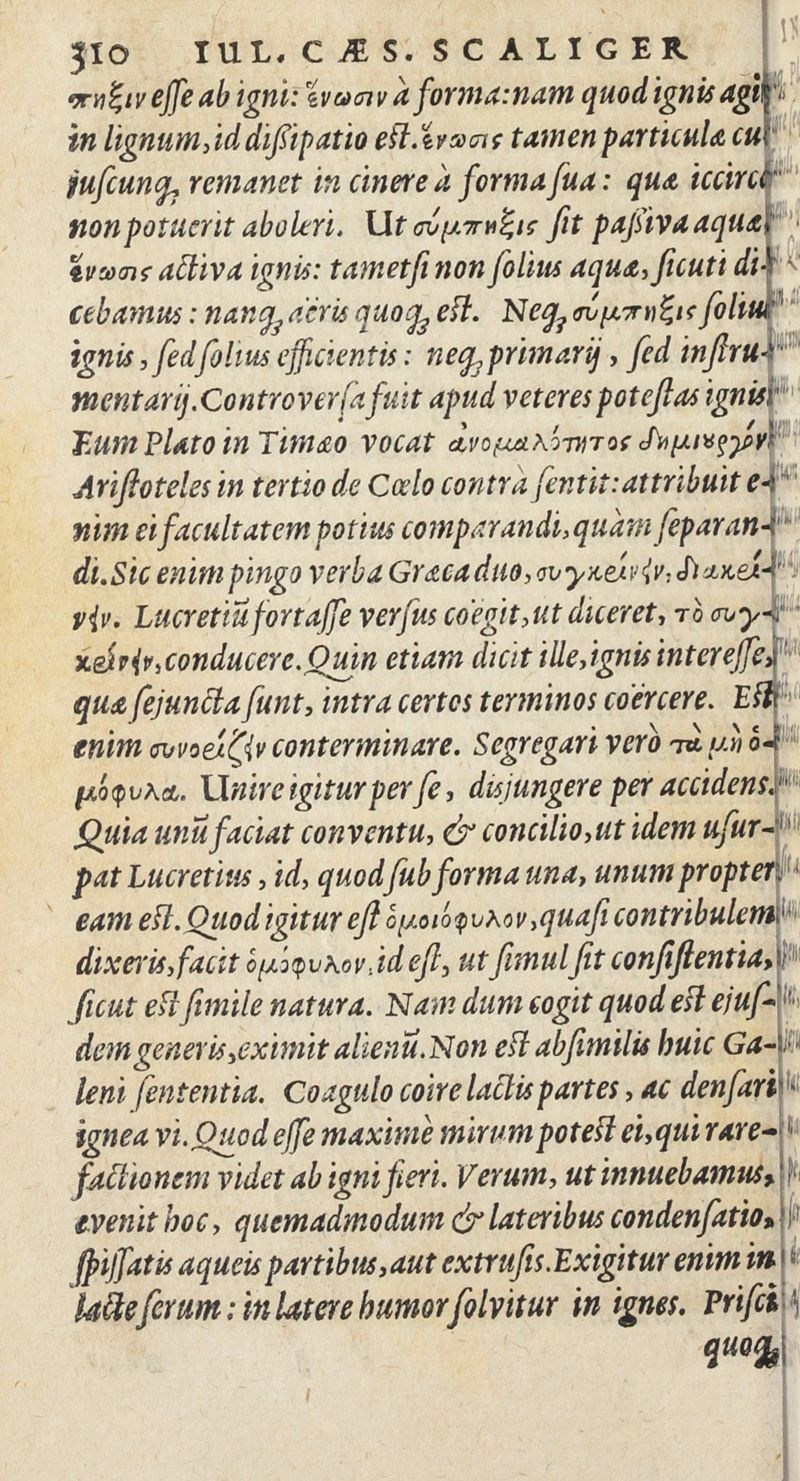 310 IUL. CÆS. SCALIGER
πηξιν esse ab igni: ἕνωσιν à forma: nam quod ignis agit
in lignum, id dißipatio est. ἕνωσις tamen particulæ cu-
juscunq; remanet in cinere à forma sua: quæ iccirco
non potuerit aboleri. Ut σύμπηξις sit paßiva aquæ,
ἕνωσις activa ignis: tametsi non solius aquæ, sicuti di-
cebamus: nanq; aëris quoq; est. Neq; σύμπηξις solius
ignis, sed solius efficientis: neq; primarij, sed instru-
mentarij. Controversa fuit apud veteres potestas ignis.
Eum Plato in Timæo vocat ἀνομαλότητος δημιουργόν.
Aristoteles in tertio de Cœlo contrà sentit: attribuit e-
nim ei facultatem potius comparandi, quàm separan-
di. Sic enim pingo verba Græca duo, συγκρίνειν, διακρί-
νειν. Lucretiū fortasse versus coëgit, ut diceret, τὸ συγ-
κρίνειν, conducere. Quin etiam dicit ille, ignis interesse,
quæ sejuncta sunt, intra certos terminos coërcere. Est
enim συνορίζειν conterminare. Segregari verò τὰ μὴ ὁ-
μόφυλα. Unire igitur per se, disjungere per accidens.
Quia unū faciat conventu, & concilio, ut idem usur-
pat Lucretius, id, quod sub forma una, unum propter
eam est. Quod igitur est ὁμοιόφυλον, quasi contribulem
dixeris, facit ὁμόφυλον, id est, ut simul sit consistentia,
sicut est simile natura. Nam dum cogit quod est ejus-
dem generis, eximit alienū. Non est absimilis huic Ga-
leni sententia. Coagulo coire lactis partes, ac densari
ignea vi. Quod esse maximè mirum potest ei, qui rare-
factionem videt ab igni fieri. Verum, ut innuebamus,
evenit hoc, quemadmodum & lateribus condensatio,
spissatis aqueis partibus, aut extrusis. Exigitur enim in
lacte serum: in latere humor solvitur in ignes. Prisci
quoq;